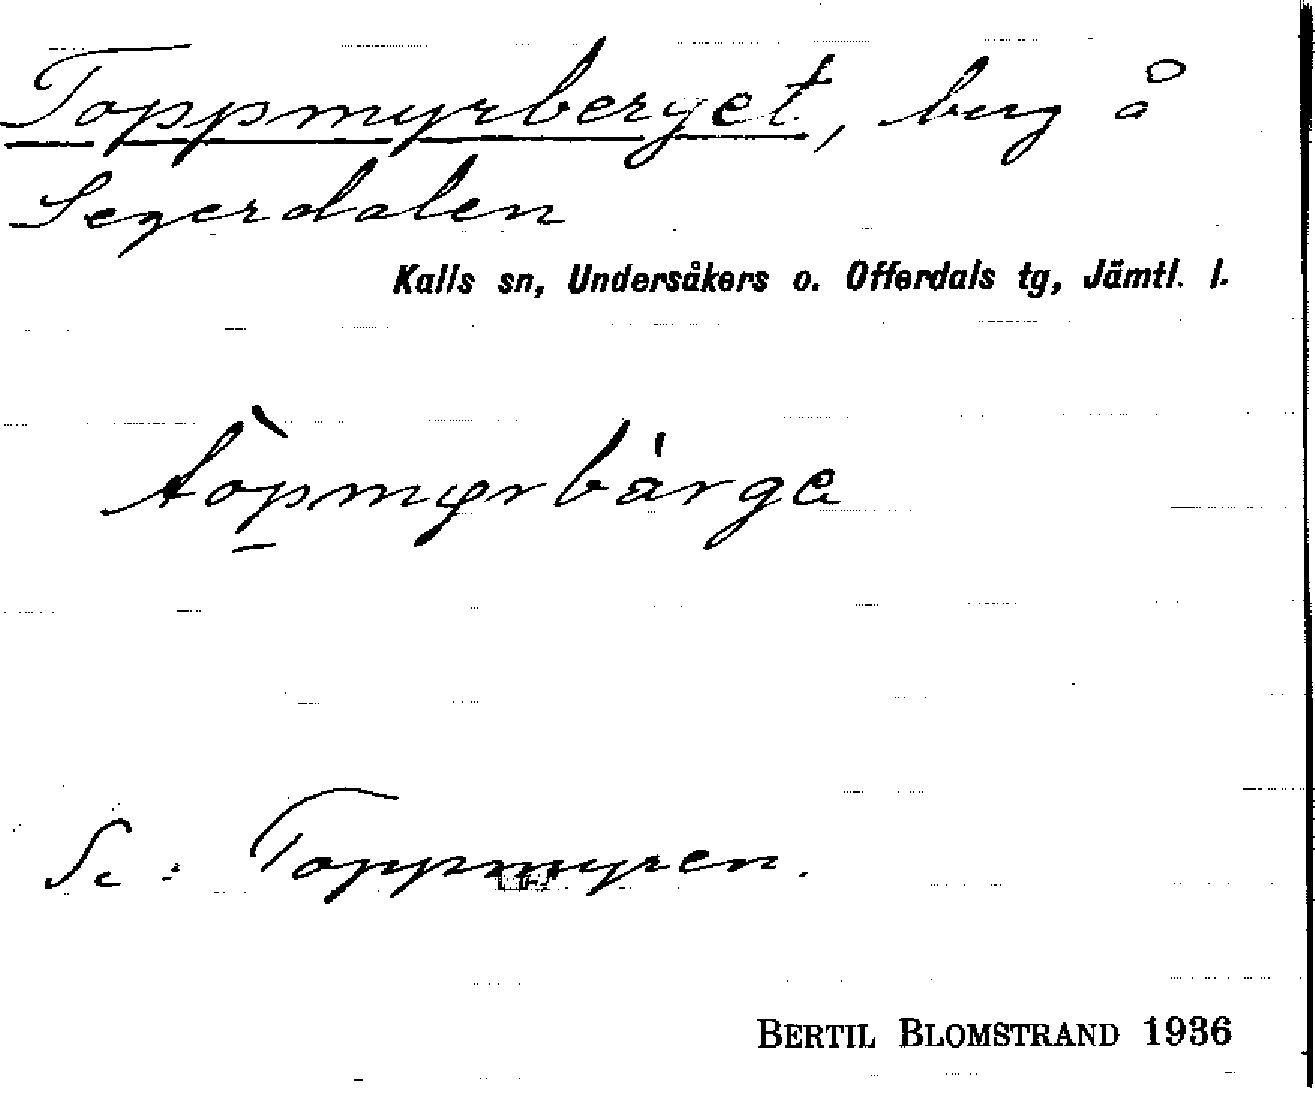 Toppmyrberget, berg å
Segerdalen
Kalls sn, Undersåkers o. Offerdals tg, Jämtl. l.
tòpmyrbárga
Se: Toppmyren.
BERTIL BLOMSTRAND 1936